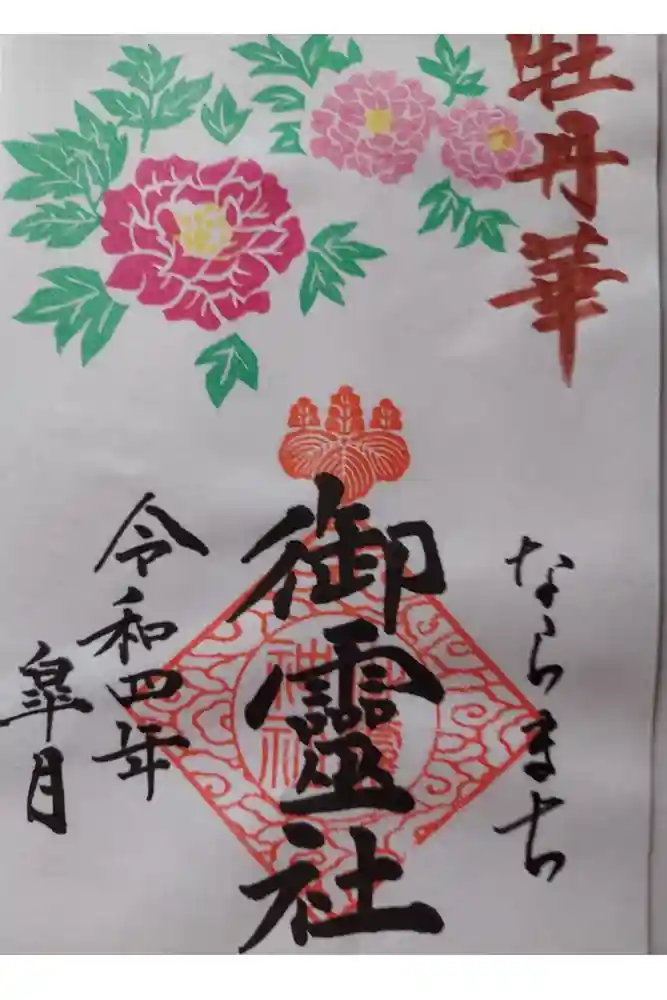 牡丹華
ならまち
御靈社
令和四年
皐月